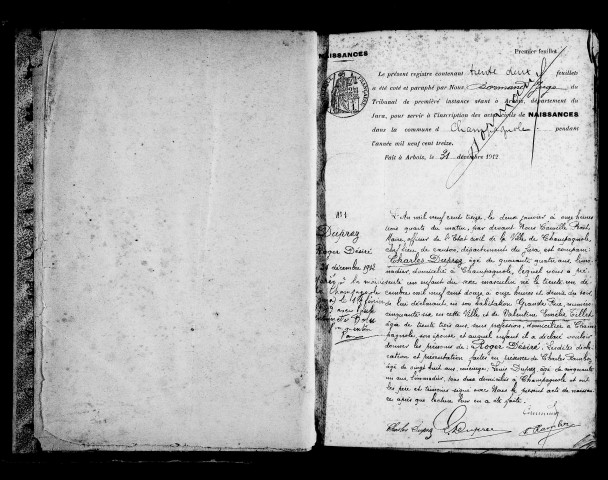 NAISSANCES
Premier feuillet
Le présent registre contenant trente deux feuillets
a été coté et paraphé par Nous Normand Juge du
Tribunal de première instance séant à Arbois, département du
Jura, pour servir à l'inscription des actes de NAISSANCES
dans la commune d Champagnole pendant
l'année mil neuf cent treize.
Fait à Arbois, le 31 décembre 1912
Normand
N° 1
Duprez
Roger Désiré
31 décembre 1912
L'An mil neuf cent treize, le deux janvier à onze heures
un quart du matin, par devant Nous Camille Prost
Maire, officier de l'Etat civil de la Ville de Champagnole,
chef lieu de canton, département du Jura est comparu
Charles Duprez âgé de quarante quatre ans,
domicilié à Champagnole, lequel nous a pré-
senté un enfant du sexe masculin né le trente un dé-
cembre mil neuf cent douze à onze heures et demie du soir,
de lui déclarant en son habitation Grande Rue, numéro
cinquante six en cette Ville et de Valentine Tillet
âgée de trente trois ans, sans profession, domiciliée à Cham-
pagnole, son épouse, et auquel enfant il a déclaré vouloir
donner les prénoms de Roger Désiré. Lesdites décla-
ration et présentation faites en présence de Charles
âgé de vingt huit ans, Louis Duprez âgé de cinquante
un ans, tous deux domiciliés à Champagnole et ont
les père et témoins signé avec Nous le présent acte de naissan-
ce après que lecture leur en a été faite.
Charles Duprez Duprez